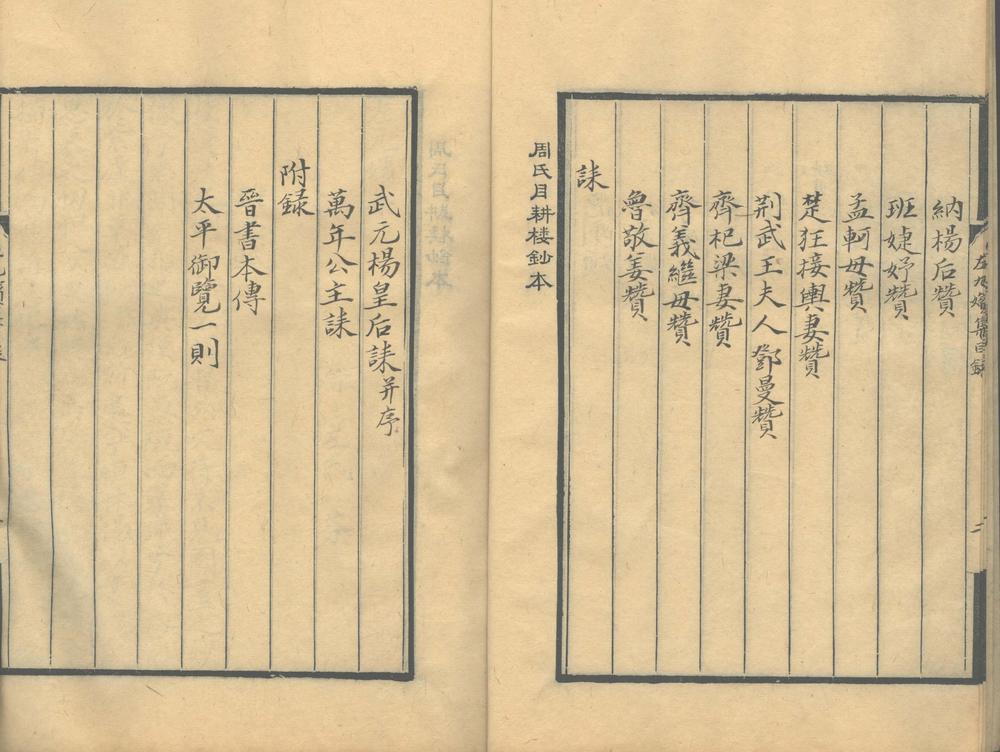 左九嬪集目錄
二
納楊后贊
班婕妤贊
孟軻母贊
楚狂接輿妻贊
荆武王夫人鄧曼贊
齊杞梁妻贊
齊義繼母贊
魯敬姜贊
誄
周氏目耕楼鈔本
武元楊皇后誄并序
萬年公主誄
附録
晉書本傳
太平御覽一則